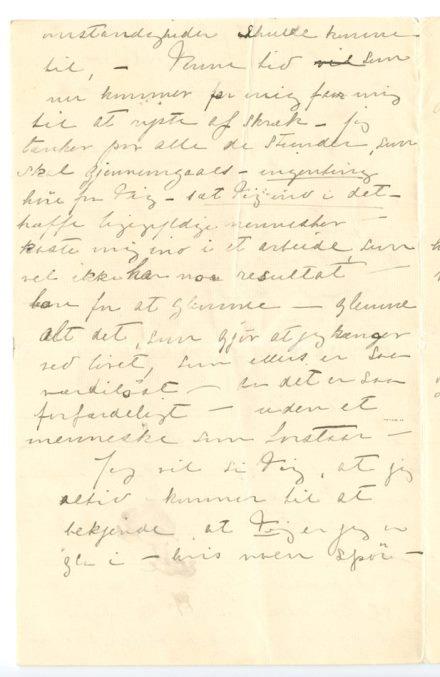 omstændigheder skulde komme
til, – Denne tid vil som
nu kommer for mig faar mig
til at ryste af skræk – jeg
tænker på alle de stunder, som
skal gjennemgaaes – ingenting
høre fra Dig – sat Dig ind i det –
træffe ligegyldige mennesker –
kaste mig ind i et arbeide, som
vel ikke har noe resultat –
bare for at glemme – glemme
alt det, som gjør at jeg hænger
ved livet, som ellers er saa
værdiløst – det er saa
forfærdeligt – uden et
menneske som forstaar –
Jeg vil si Dig, at jeg
altid kommer til at
bekjende, at Dig er jeg
gla i – hvis noen spør –